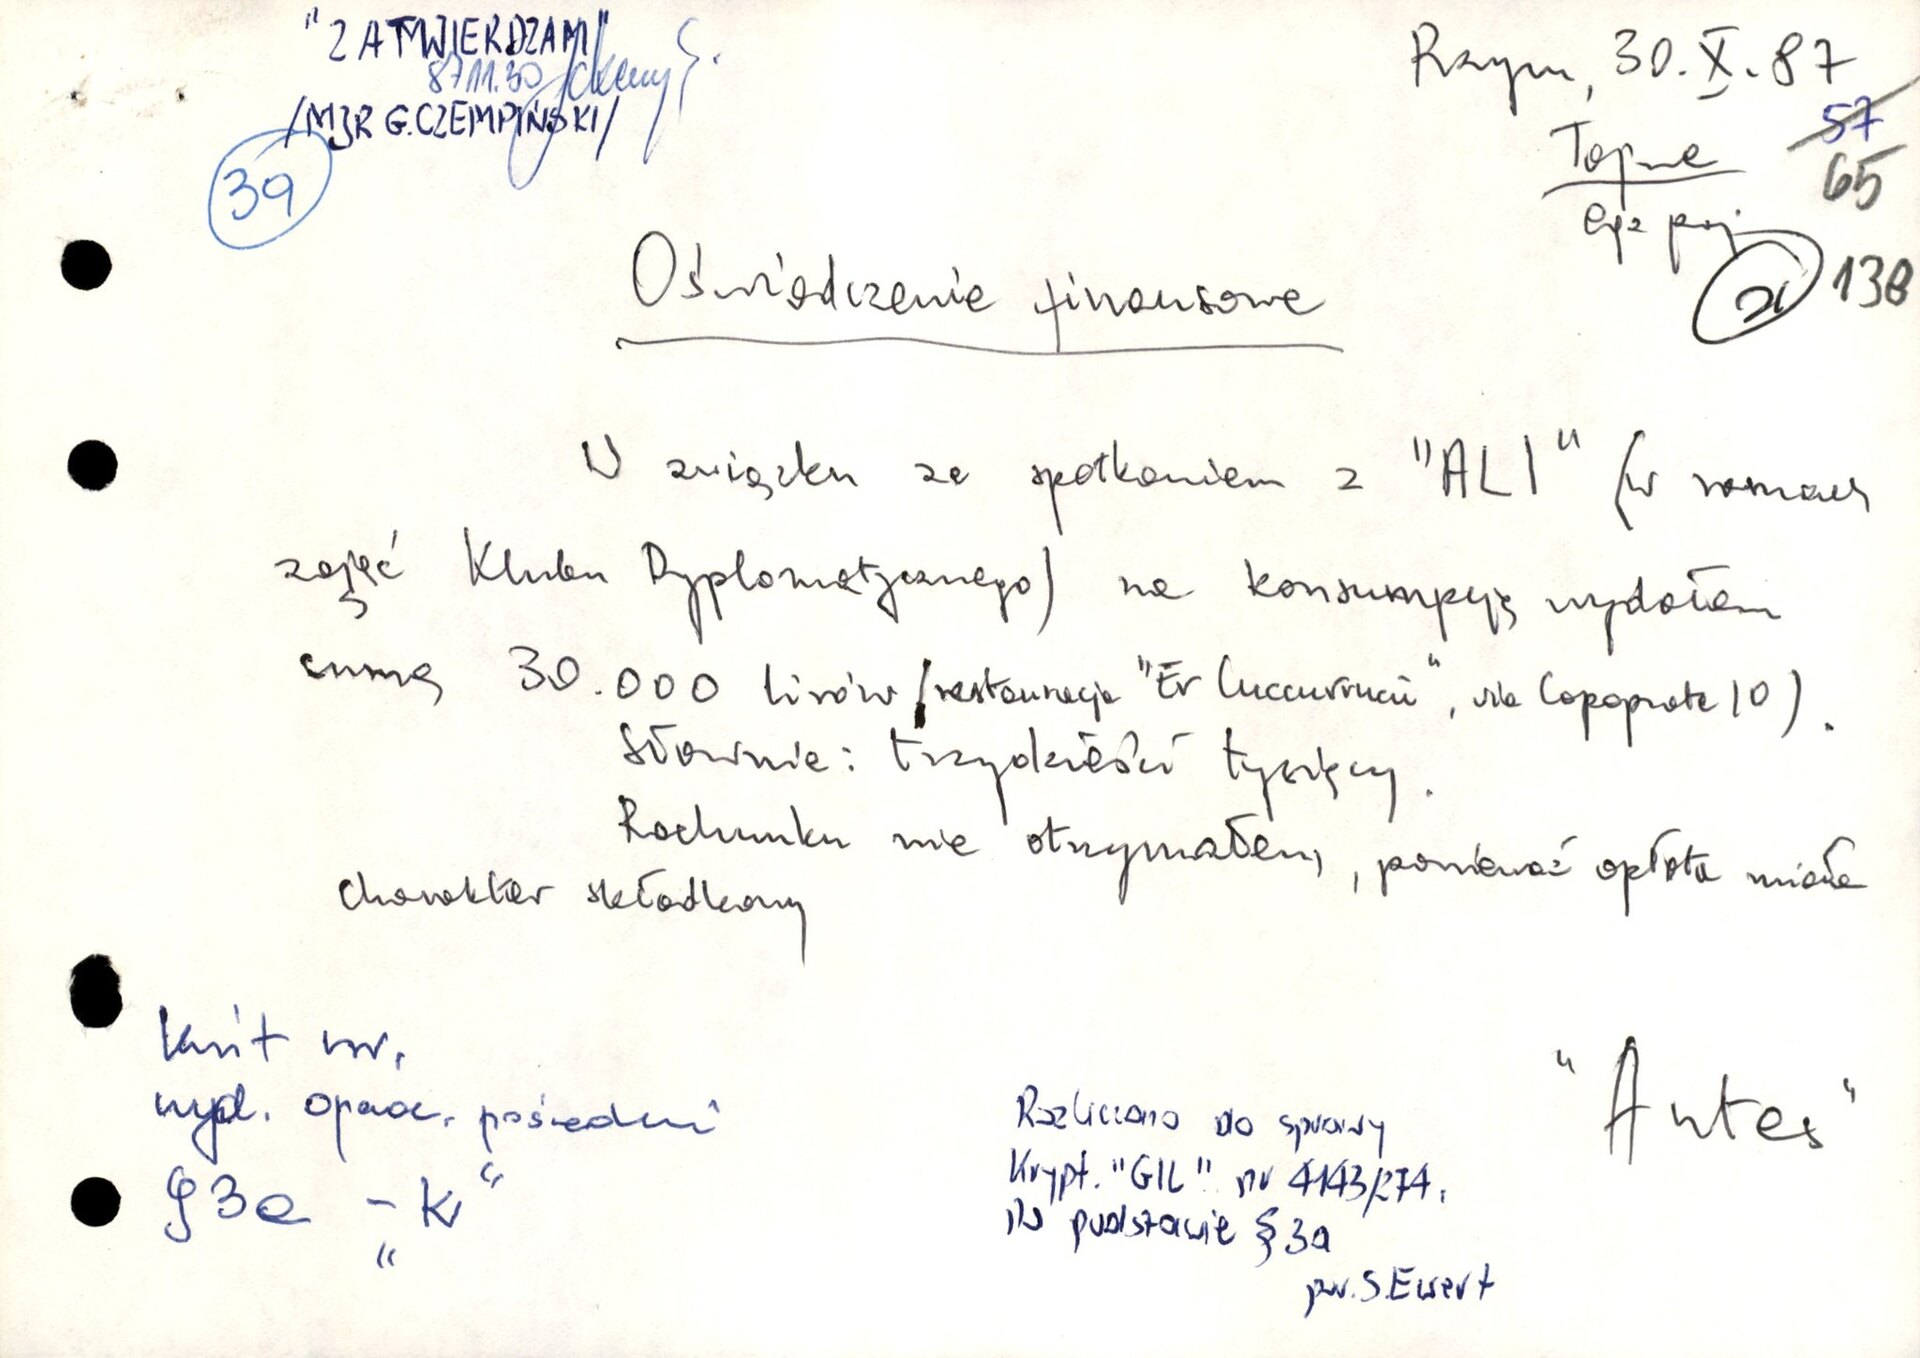 "ZATWIERDZAM"
87.11.30
/MJR G.CZEMPIŃSKI/
39
Rzym, 30.X.87
57
Tajne
65
egz poj.
138
Oświadczenie finansowe
W związku ze spotkaniem z "ALI" (w ramach
zajęć Klubu Dyplomatycznego) na konsumpcję wydałem
sumę 30.000 lirów (restauracja "Er Cuccurucù", via Capoprati 10).
Słownie: trzydzieści tysięcy.
Rachunku nie otrzymałem, ponieważ opłata miała
charakter składkowy
Kwit nr.
wyd. operac. pośredni
§ 3a - "K"
"Antes"
Rozliczono do sprawy
Krypt. "GIL" nr 4143/274.
na podstawie § 3a
por. S. Ewert